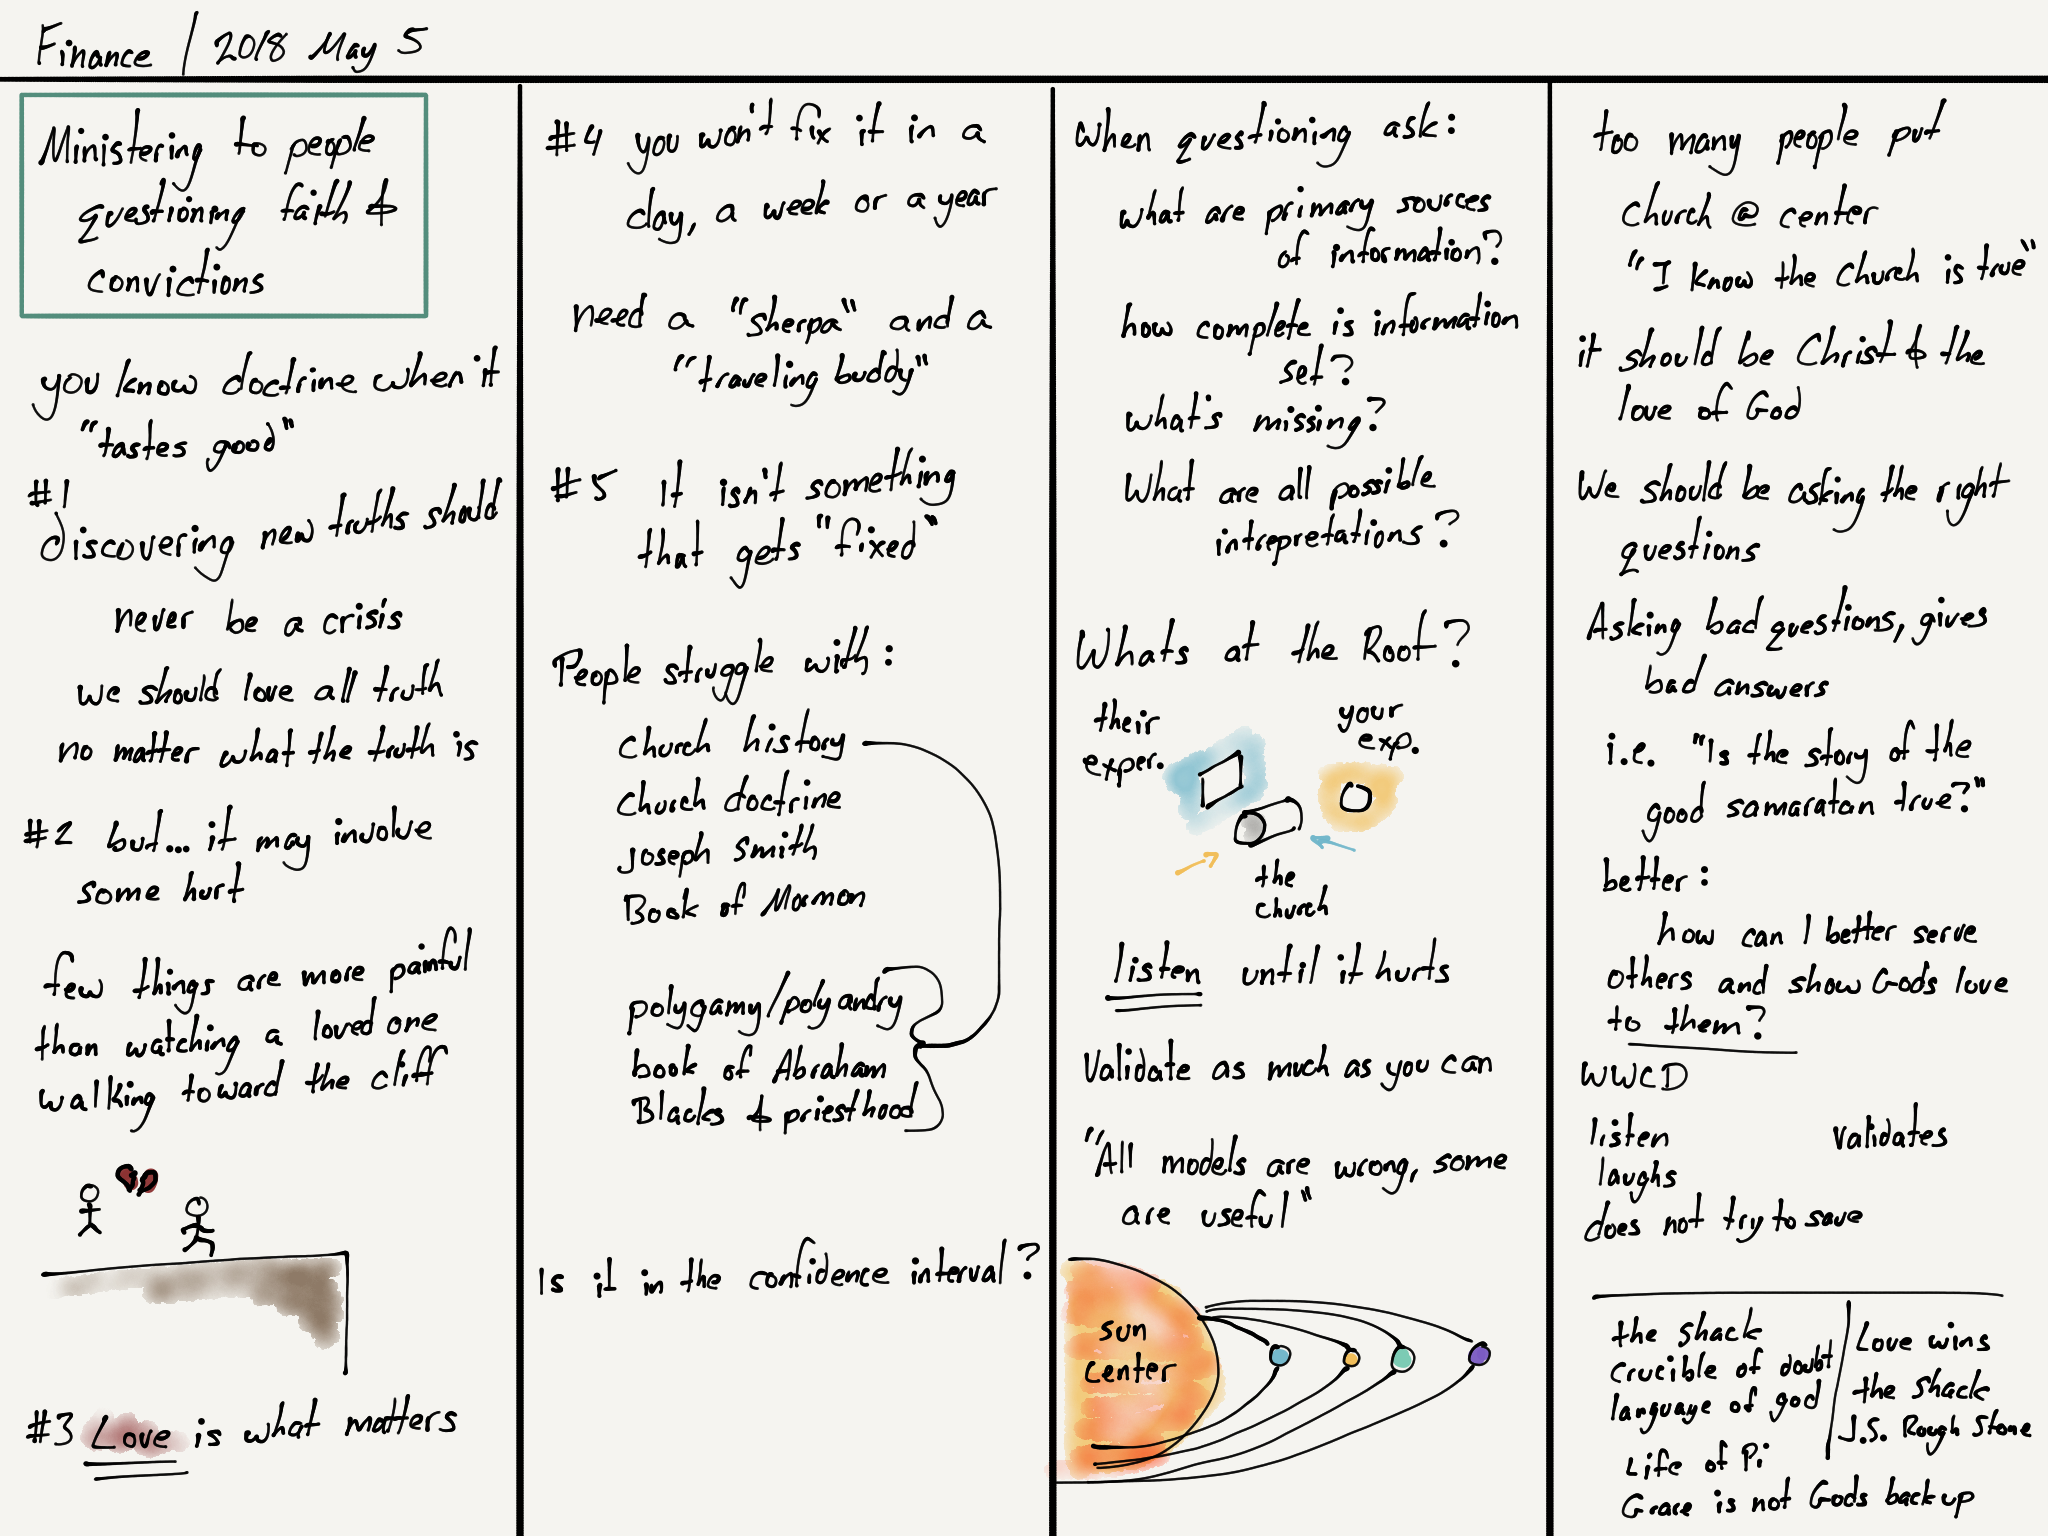 Finance / 2018 May 5
Ministering to people
questioning faith &
convictions
you know doctrine when it
"tastes good"
#1
discovering new truths should
never be a crisis
we should love all truth
no matter what the truth is
#2 but... it may involve
some hurt
few things are more painful
than watching a loved one
walking toward the cliff
#3 Love is what matters
#4 you won't fix it in a
day, a week or a year
need a "sherpa" and a
"traveling buddy"
#5 It isn't something
that gets "fixed"
People struggle with:
Church history
Church doctrine
Joseph Smith
Book of Mormon
polygamy/polyandry
book of Abraham
Blacks & priesthood
Is it in the confidence interval?
When questioning ask:
what are primary sources
of information?
how complete is information
set?
what's missing?
What are all possible
intrepretations?
Whats at the Root?
their
exper.
your
exp.
the
church
listen until it hurts
Validate as much as you can
"All models are wrong, some
are useful"
sun
center
too many people put
Church @ center
"I know the Church is true"
it should be Christ & the
love of God
We should be asking the right
questions
Asking bad questions, gives
bad answers
i.e. "Is the story of the
good samaratan true?"
better:
how can I better serve
others and show Gods love
to them?
WWCD
listen validates
laughs
does not try to save
the shack
crucible of doubt
language of god
Life of Pi
Grace is not Gods backup
Love wins
the shack
J.S. Rough Stone